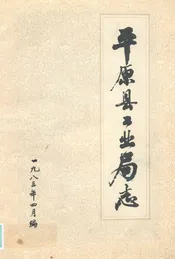 平原县工业局志
一九八五年四月编